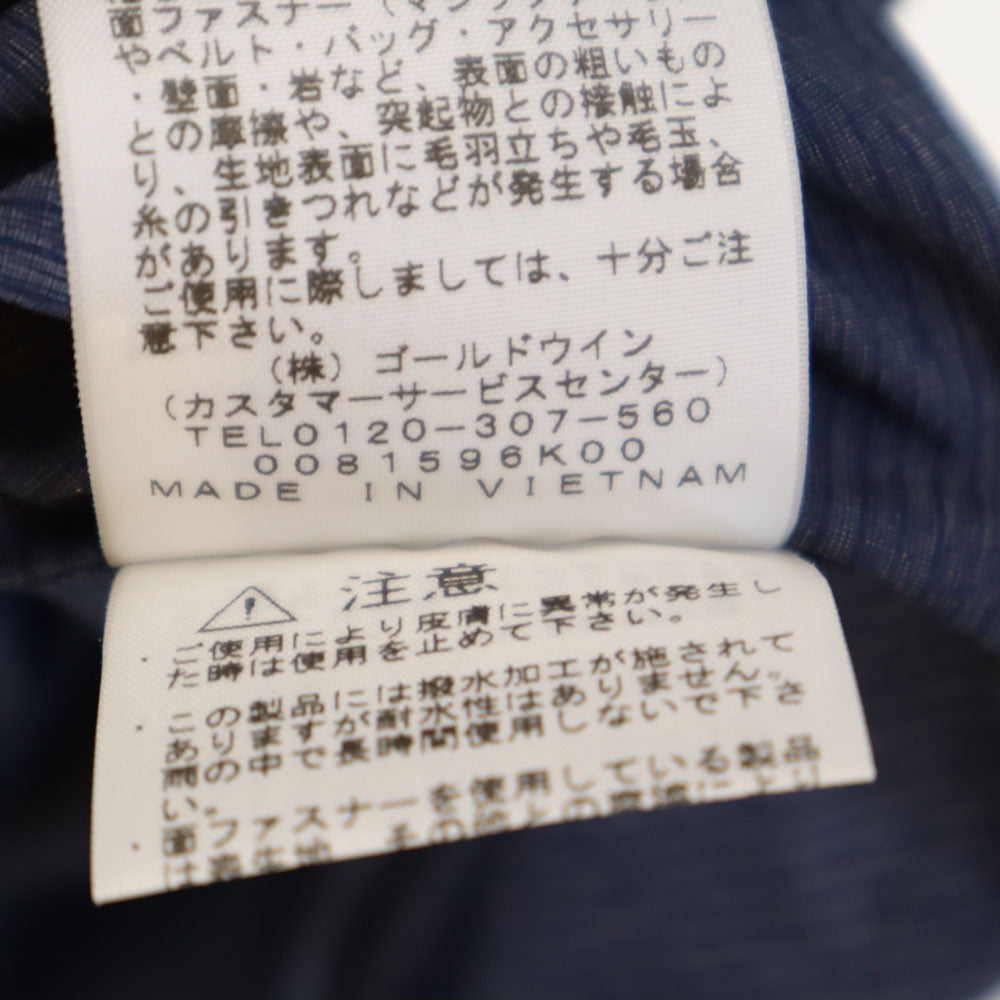 面ファスナー（マジックテープ
やベルト・バッグ・アクセサリー
・壁面・岩など、表面の粗いもの
との摩擦や、突起物との接触によ
り、生地表面に毛羽立ちや毛玉、
糸の引きつれなどが発生する場合
があります。
ご使用に際しましては、十分ご注
意下さい。
（株）ゴールドウイン
（カスタマーサービスセンター）
TEL0120-307-560
0081596K00
MADE IN VIETNAM
注意
・ご使用により皮膚に異常が発生し
た時は使用を止めて下さい。
・この製品には撥水加工が施されて
ありますが耐水性はありません。
雨の中で長時間使用しないで下さ
い。
・面ファスナーを使用している製品
は表生地、その他との